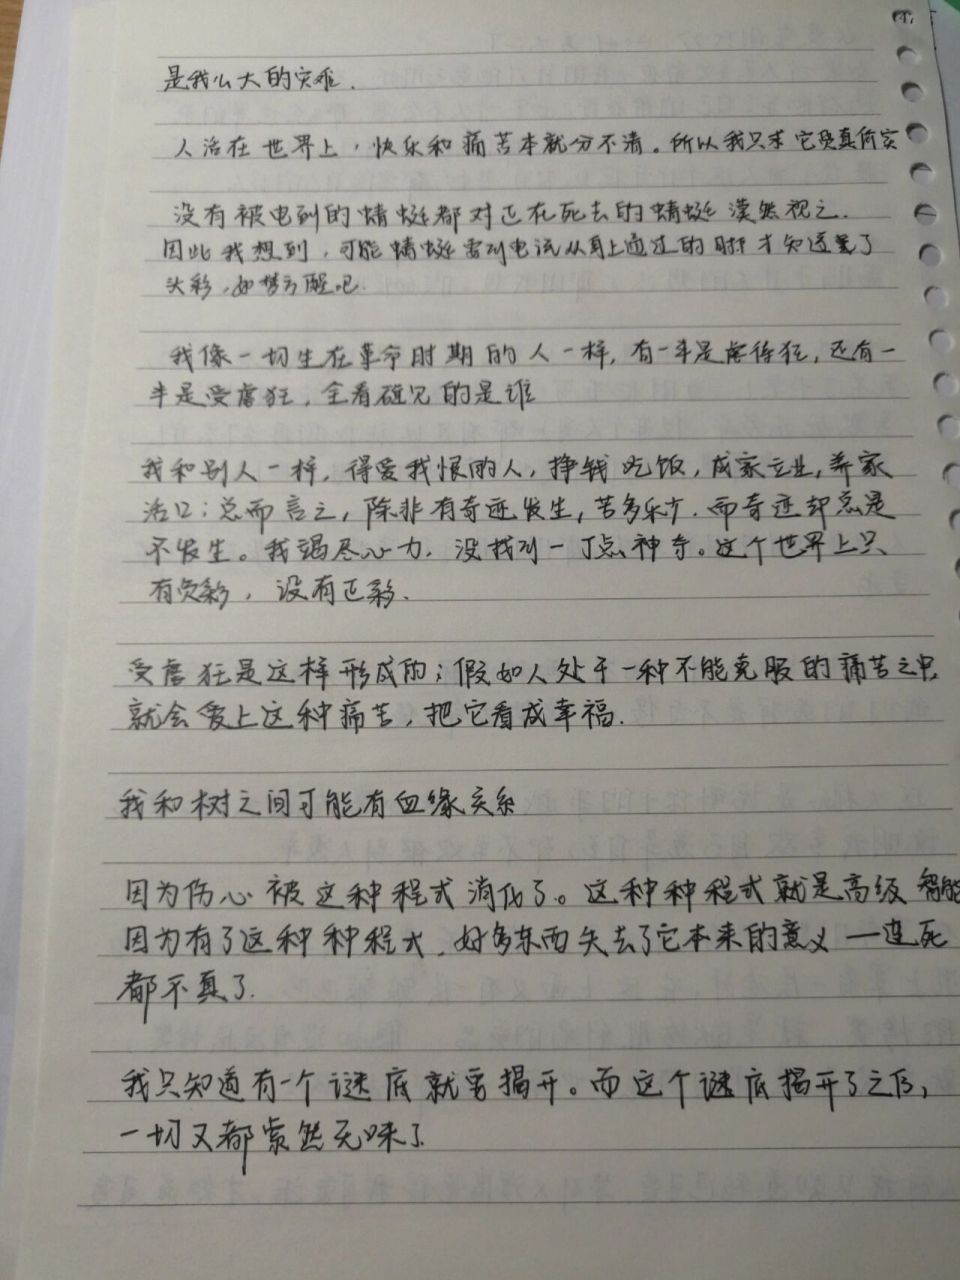 是我么大的灾难.
人活在世界上，快乐和痛苦本就分不清。所以我只求它货真价实
没有被电到的蜻蜓都对正在死去的蜻蜓漠然视之.
因此我想到，可能蜻蜓要到电流从身上通过的时才知道是了
头彩，如梦方醒吧.
我像一切生在革命时期的人一样，有一半是虐待狂，还有一
半是受虐狂，全看碰见的是谁
我和别人一样，得爱我恨的人，挣钱吃饭，成家立业，养家
活口；总而言之，除非有奇迹发生，苦多乐少.而奇迹却总是
不发生。我竭尽心力，没找到一丁点神奇。这个世界上只
有负彩，没有正彩.
受虐狂是这样形成的；假如人处于一种不能克服的痛苦之中，
就会爱上这种痛苦，把它看成幸福.
我和树之间可能有血缘关系
因为伤心被这种程式消化了。这种种程式就是高级智能
因为有了这种种程式，好多东西失去了它本来的意义——连死
都不真了.
我只知道有一个谜底就要揭开。而这个谜底揭开了之后，
一切又都索然无味了